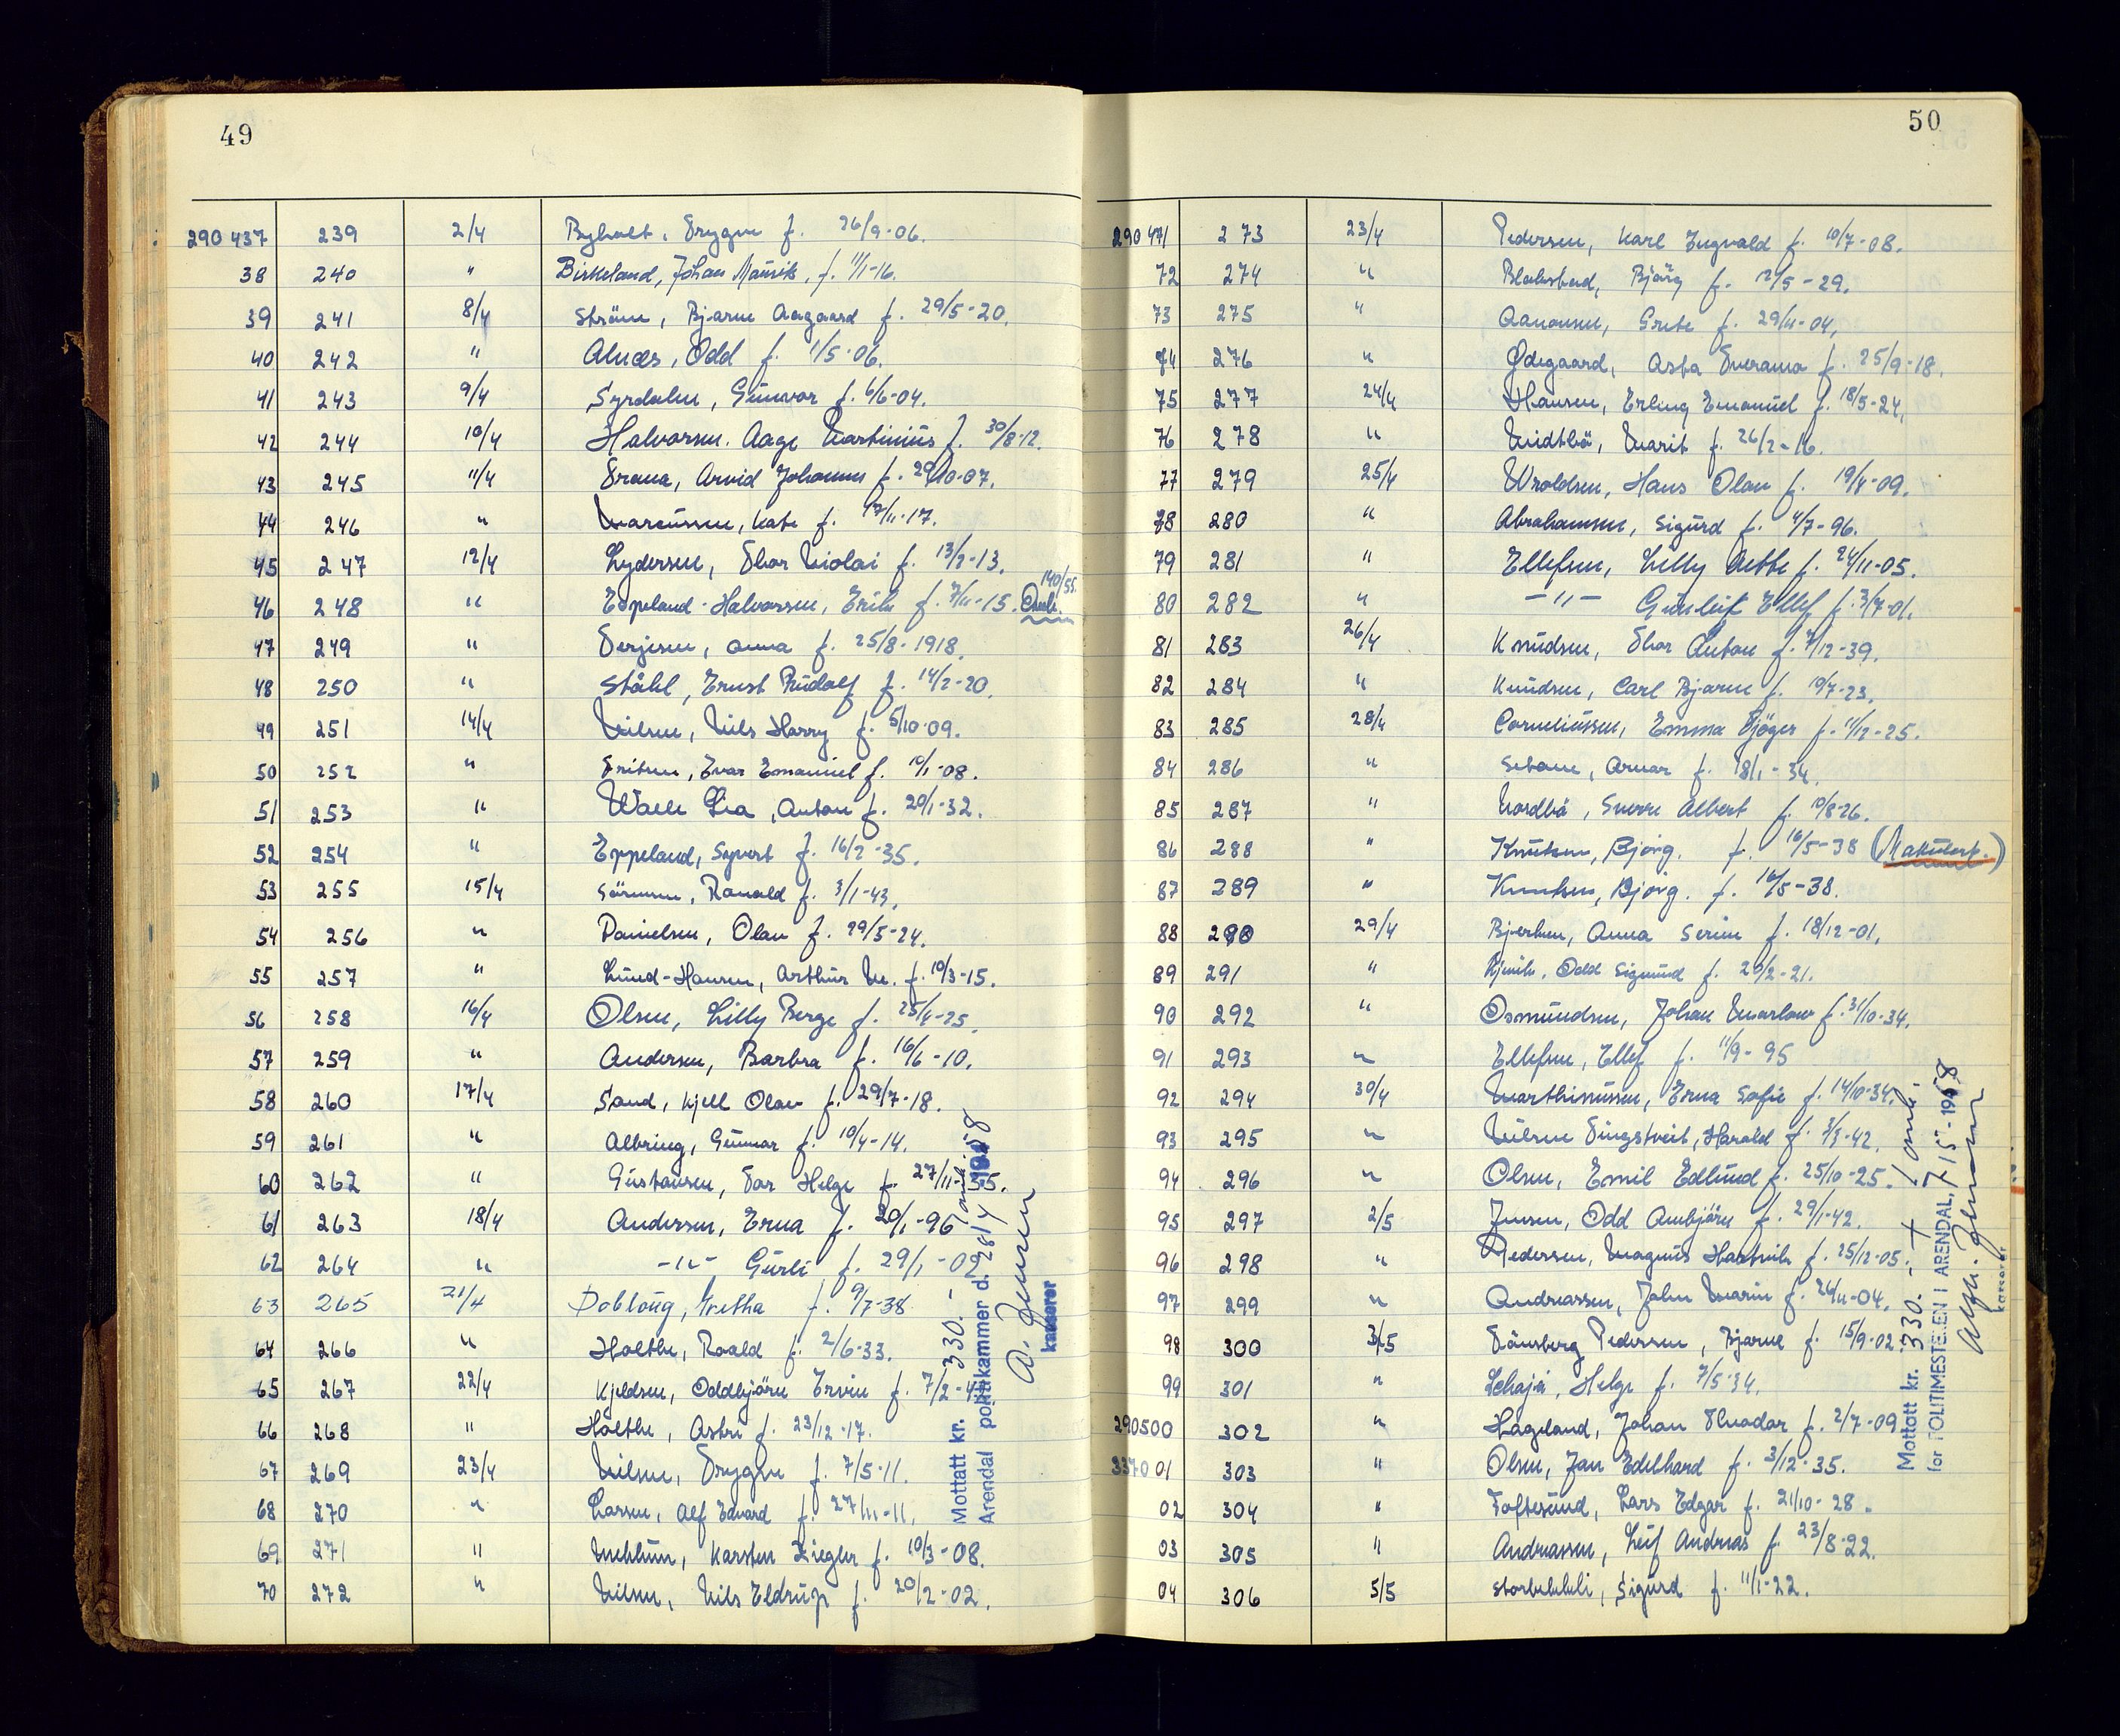 49
290 437 239 2/4 Byholt, Trygve f. 26/9-06.
38 240 " Birkeland, Johan Mauritz, f. 11/1-16.
39 241 8/4 Ström, Bjarne Aagaard f. 29/5-20.
40 242 " Alnæs, Odd f. 1/5-06.
41 243 9/4 Syrdalen, Gunvor f. 6/6-04.
42 244 10/4 Halvorsen, Aage Martinius f. 30/8-12.
43 245 11/4 Trana, Arvid Johannes f. 29/10-07.
44 246 " Marcussen, Kate f. 17/11-17.
45 247 12/4 Lydersen, Thor Nicolai f. 13/2-13.
46 248 " Espeland-Halvorsen, Erik f. 7/11-15. 140/55.
47 249 " Terjesen, Anna f. 25/8-1918.
48 250 " Ståhl, Ernst Rudolf f. 14/2-20.
49 251 14/4 Nilsen, Nils Harry f. 5/10-09.
50 252 " Fritzen, Ivar Emanuel f. 10/1-08.
51 253 " Waell Lia, Anton f. 20/1-32.
52 254 " Eppeland, Syvert f. 16/2-35.
53 255 15/4 Sörensen, Ronald f. 3/1-43.
54 256 " Danielsen, Olav f. 29/5-24.
55 257 " Lund-Hansen, Arthur M. f. 10/3-15.
56 258 16/4 Olsen, Lilly Berge f. 25/4-25.
57 259 " Andersen, Barbra f. 16/6-10.
58 260 17/4 Sand, Kjell Olav f. 29/7-18.
59 261 " Albring, Gunnar f. 10/4-14.
60 262 " Gustavsen, Tor Helge f. 27/11-35.
61 263 18/4 Andersen, Erna f. 20/1-96
62 264 " -"- Gurli f. 29/1-02
63 265 21/4 Dobloug, Gretha f. 9/7-38
64 266 " Holthe, Roald f. 2/6-33.
65 267 22/4 Kjeldsen, Oddbjörn Ervin f. 7/2-
66 268 " Holthe, Astri f. 23/12-17.
67 269 23/4 Nilsen, Trygve f. 7/5-11.
68 270 " Larsen, Alf Edvard f. 27/11-11.
69 271 " Mehlum, Karsten Ziegler f. 10/3-08.
70 272 " Nilsen, Nils Eldrup f. 20/2-02.
Mottatt kr. 330.-
Arendal politikammer d. 28/4 1958
A. Jensen
kasserer
50
290 471 273 23/4 Pedersen, Karl Ingvald f. 10/7-08.
72 274 " Blakstad, Björg f. 12/5-29.
73 275 " Aanonsen, Grete f. 29/11-04.
74 276 " Ødegaard, Asta Sverama f. 25/9-18.
75 277 24/4 Hansen, Erling Emanuel f. 18/5-24.
76 278 " Midtbö, Marit f. 26/2-16.
77 279 25/4 Wroldsen, Hans Olav f. 19/4-09.
78 280 " Abrahamsen, Sigurd f. 4/7-96.
79 281 " Ellefsen, Lilly Anthe f. 24/11-05.
80 282 " -"- Gunleif Ellef f. 3/7-01.
81 283 26/4 Knudsen, Thor Anton f. 7/12-39.
82 284 " Knudsen, Carl Bjarne f. 19/7-23.
83 285 28/4 Corneliussen, Emma Tjöger f. 11/12-25.
84 286 " Setane, Arnar f. 18/1-34.
85 287 " Nordbö, Sverre Albert f. 10/8-26.
86 288 " Knutsen, Bjørg. f. 16/5-38 (Makulert.)
87 289 " Knutsen, Bjørg. f. 16/5-38.
88 290 29/4 Bjerken, Anna Serine f. 18/12-01.
89 291 " Odd Sigmund f. 20/2-21.
90 292 " Osmundsen, Johan Marlow f. 31/10-34.
91 293 " Ellefsen, Ellef f. 11/9-95
92 294 30/4 Marthinussen, Erna Sofie f. 14/10-34.
93 295 " Nilsen Tingstveit, Harald f. 3/3-42.
94 296 " Olsen, Emil Edlund f. 25/10-25.
95 297 2/5 Jensen, Odd Arnbjörn f. 29/1-42.
96 298 " Pedersen, Magnus Hartvik f. 25/12-05.
97 299 " Andreassen, John Marin f. 26/11-04.
98 300 3/5 Tönsberg Pedersen, Bjarne f. 15/9-02.
99 301 " Helge f. 7/5-34.
290500 302 " Hageland, Johan Thradar f. 2/7-09
337001 303 " Olsen, Jan Edelhard f. 3/12-35.
02 304 " Toftesund, Lars Edgar f. 21/10-28.
03 305 " Andreassen, Leif Andreas f. 23/8-22.
04 306 5/5 Sigurd f. 11/1-22.
Mottatt kr. 330.-
for POLITIMESTEREN I ARENDAL, 7/5-1958
Jensen
kasserer